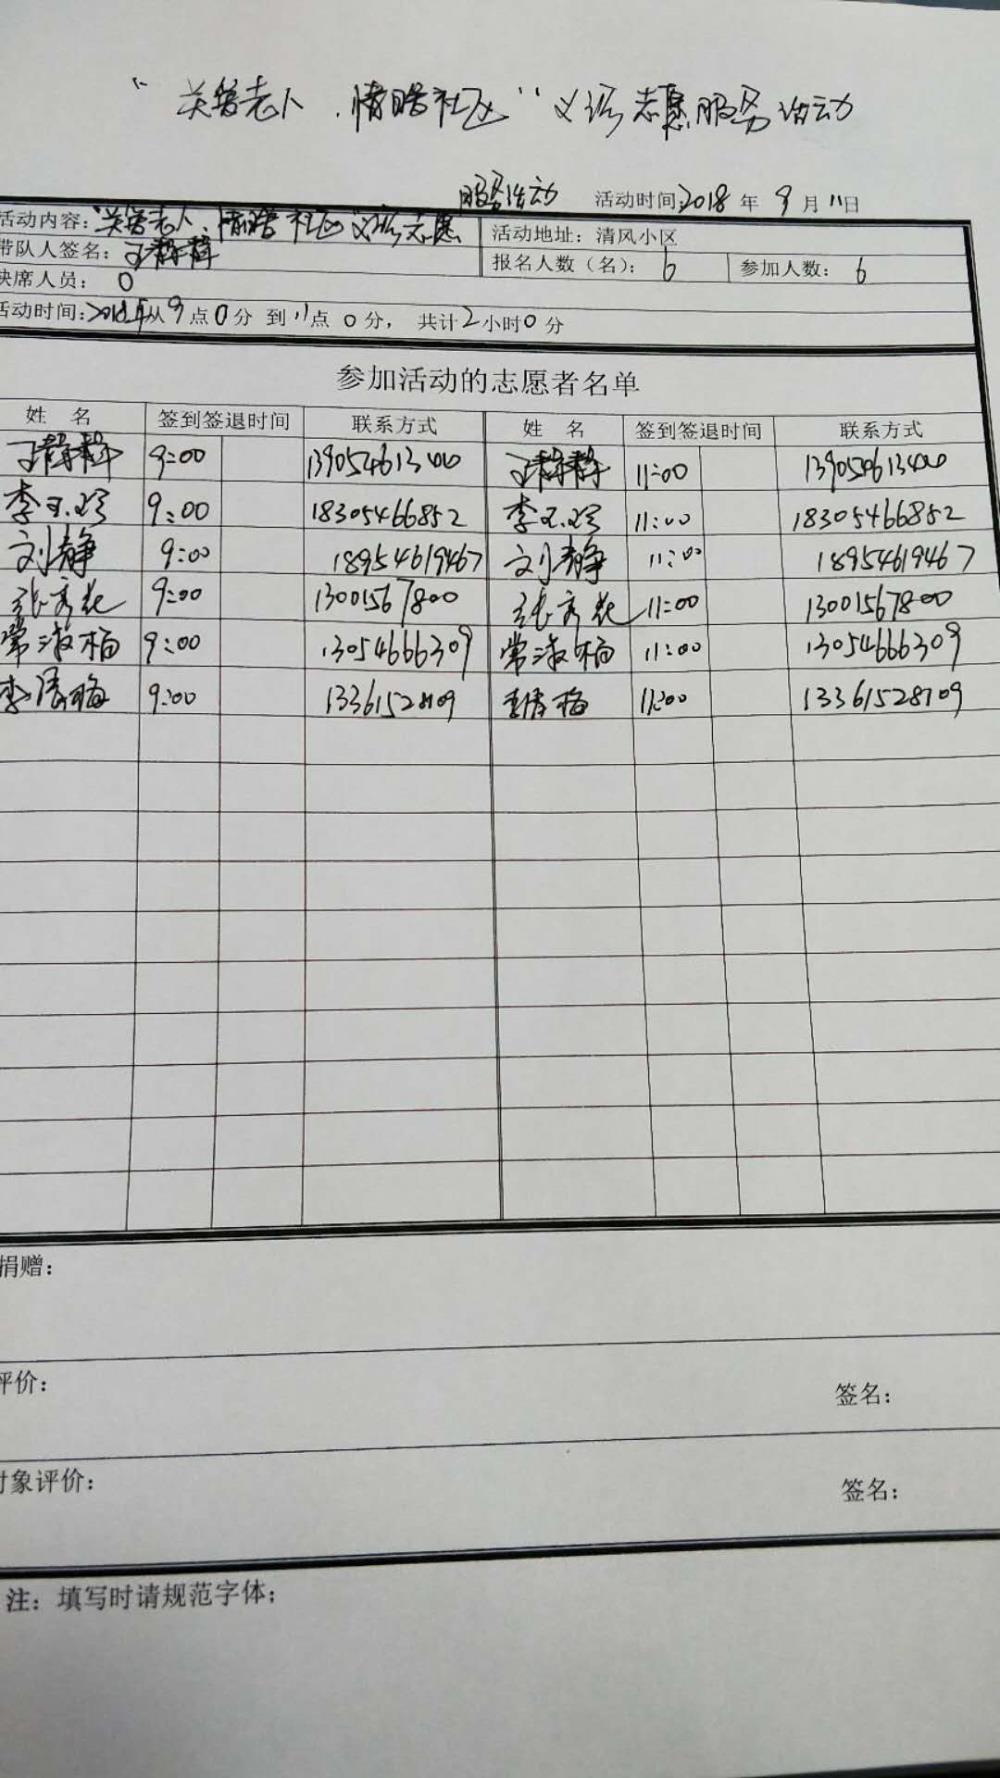 “关爱老人、情暖社区”义诊志愿服务活动
服务活动 活动时间2018年9月11日
活动内容:“关爱老人、情暖社区”义诊志愿 活动地址：清风小区
带队人签名：王静静 报名人数（名）：6 参加人数：6
缺席人员：0
活动时间:2018年从9点0分 到11点0分， 共计2小时0分
参加活动的志愿者名单
姓 名 签到签退时间 联系方式 姓 名 签到签退时间 联系方式
王静静 9:00 13905461340 王静静 11:00 13905461340
李玉珍 9:00 18305466852 李玉珍 11:00 18305466852
刘静 9:00 18954619467 刘静 11:00 18954619467
张秀花 9:00 13001567800 张秀花 11:00 13001567800
常淑梅 9:00 13054666309 常淑梅 11:00 13054666309
李清梅 9:00 13361528109 李清梅 11:00 13361528109
捐赠：
评价： 签名：
对象评价： 签名：
注：填写时请规范字体；